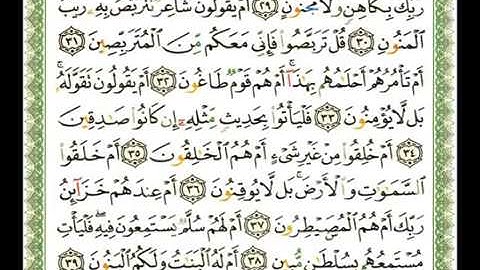 رَبِّكَ بِكَاهِنٍ وَلَا مَجْنُونٍ ﴿٢٩﴾ أَمْ يَقُولُونَ شَاعِرٌ نَّتَرَبَّصُ بِهِۦ رَيْبَ
ٱلْمَنُونِ ﴿٣٠﴾ قُلْ تَرَبَّصُوا۟ فَإِنِّى مَعَكُم مِّنَ ٱلْمُتَرَبِّصِينَ ﴿٣١﴾
أَمْ تَأْمُرُهُمْ أَحْلَٰمُهُم بِهَٰذَآ ۚ أَمْ هُمْ قَوْمٌ طَاغُونَ ﴿٣٢﴾ أَمْ يَقُولُونَ تَقَوَّلَهُۥ ۚ
بَل لَّا يُؤْمِنُونَ ﴿٣٣﴾ فَلْيَأْتُوا۟ بِحَدِيثٍ مِّثْلِهِۦٓ إِن كَانُوا۟ صَٰدِقِينَ
﴿٣٤﴾ أَمْ خُلِقُوا۟ مِنْ غَيْرِ شَىْءٍ أَمْ هُمُ ٱلْخَٰلِقُونَ ﴿٣٥﴾ أَمْ خَلَقُوا۟
ٱلسَّمَٰوَٰتِ وَٱلْأَرْضَ ۚ بَل لَّا يُوقِنُونَ ﴿٣٦﴾ أَمْ عِندَهُمْ خَزَآئِنُ
رَبِّكَ أَمْ هُمُ ٱلْمُصَۣيْطِرُونَ ﴿٣٧﴾ أَمْ لَهُمْ سُلَّمٌ يَسْتَمِعُونَ فِيهِ ۖ فَلْيَأْتِ
مُسْتَمِعُهُم بِسُلْطَٰنٍ مُّبِينٍ ﴿٣٨﴾ أَمْ لَهُ ٱلْبَنَٰتُ وَلَكُمُ ٱلْبَنُونَ ﴿٣٩﴾